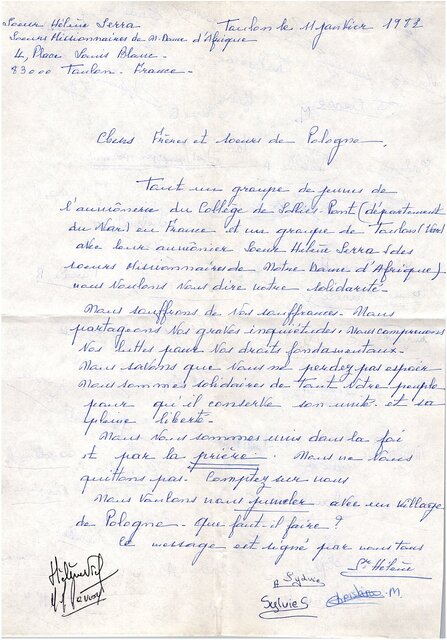 Soeur Hélène Serra Toulon le 11 janvier 1982
Soeurs Missionnaires de N. Dame d'Afrique
4, Place Louis Blanc -
83000 Toulon - France -
Chers Frères et soeurs de Pologne,
Tout un groupe de jeunes de
l'aumônerie du Collège de Solliès-Pont (département
du Var) en France et un groupe de Toulon (Var)
avec leur aumônier Soeur Hélène Serra (des
soeurs Missionnaires de Notre Dame d'Afrique)
nous voulons vous dire notre solidarité -
Nous souffrons de vos souffrances. Nous
partageons vos graves inquiétudes. Nous comprenons
vos luttes pour vos droits fondamentaux -
Nous savons que vous ne perdez pas espoir
Nous sommes solidaires de tout votre peuple
pour qu'il conserve son unité et sa
pleine liberté -
Nous vous sommes unis dans la foi
et par la prière. Nous ne vous
quittons pas. Comptez sur nous
Nous voulons nous jumeler avec un village
de Pologne - Que faut-il faire ?
Ce message est signé par nous tous
Sr Hélène
Sylvie
Sylvie S Christine. M.